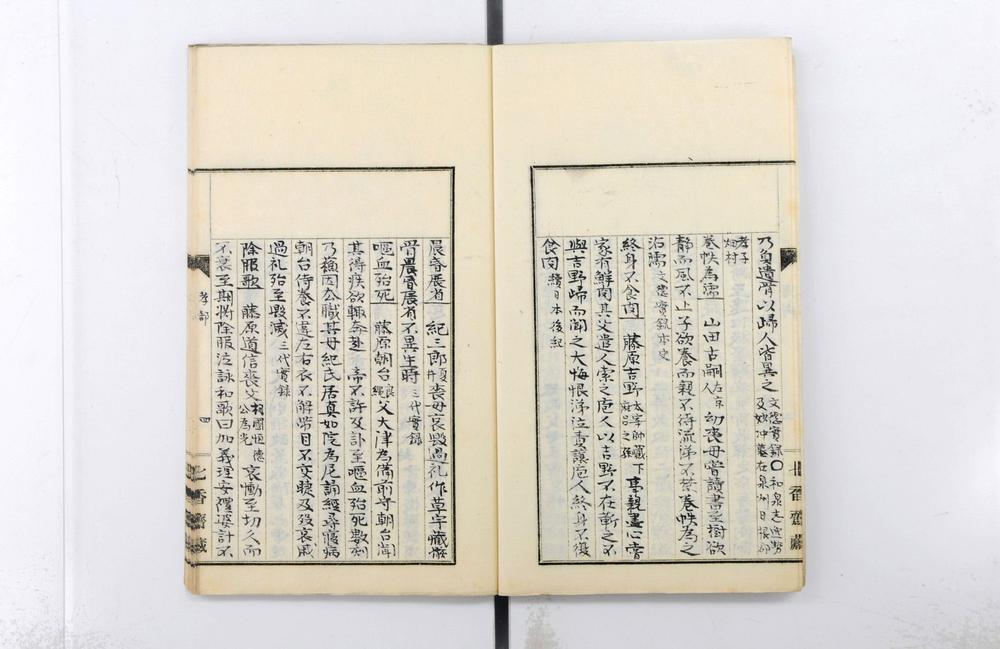 乃負遺骨以歸人皆異之文徳實録〇和泉志近㔟
及妙冲墓在泉州日根郡
孝子
畑村
巻帙為濡 山田古嗣左京人幼喪母嘗讀書至樹欲
静而風不止子欲養而親不待流涕不禁巻帙為之
沾濡文徳實録亦史
終身不食肉 藤原吉野太宰帥蔵下麻呂之孫事親盡心嘗
家有鮮肉其父遣人索之庖人以吉野不在靳之不
與吉野歸而聞之大悔恨涕泣責讓庖人終身不復
食肉續日本後紀
晨昏展省 紀三郎夏井喪母哀毀過礼作草宇藏骸
骨晨昏展省不異生時三代實録
嘔血殆死 藤原朝台良經父大津為備前守朝台聞
其得疾欲輙奔赴 帝不許及訃至嘔血殆死数刻
乃穌因公職其母紀氏居真如院為尼誦經尋寝病
朝台侍養不違左右衣不解帶目不交睫及歿哀戚
過礼殆至毀滅三代實録
除服歌 藤原道信喪父相國恒徳公為光哀慟至切久而
不衰至期將除服泣詠和歌曰加義理安禮婆計不
孝部
四
北香齋藏
北香齋藏